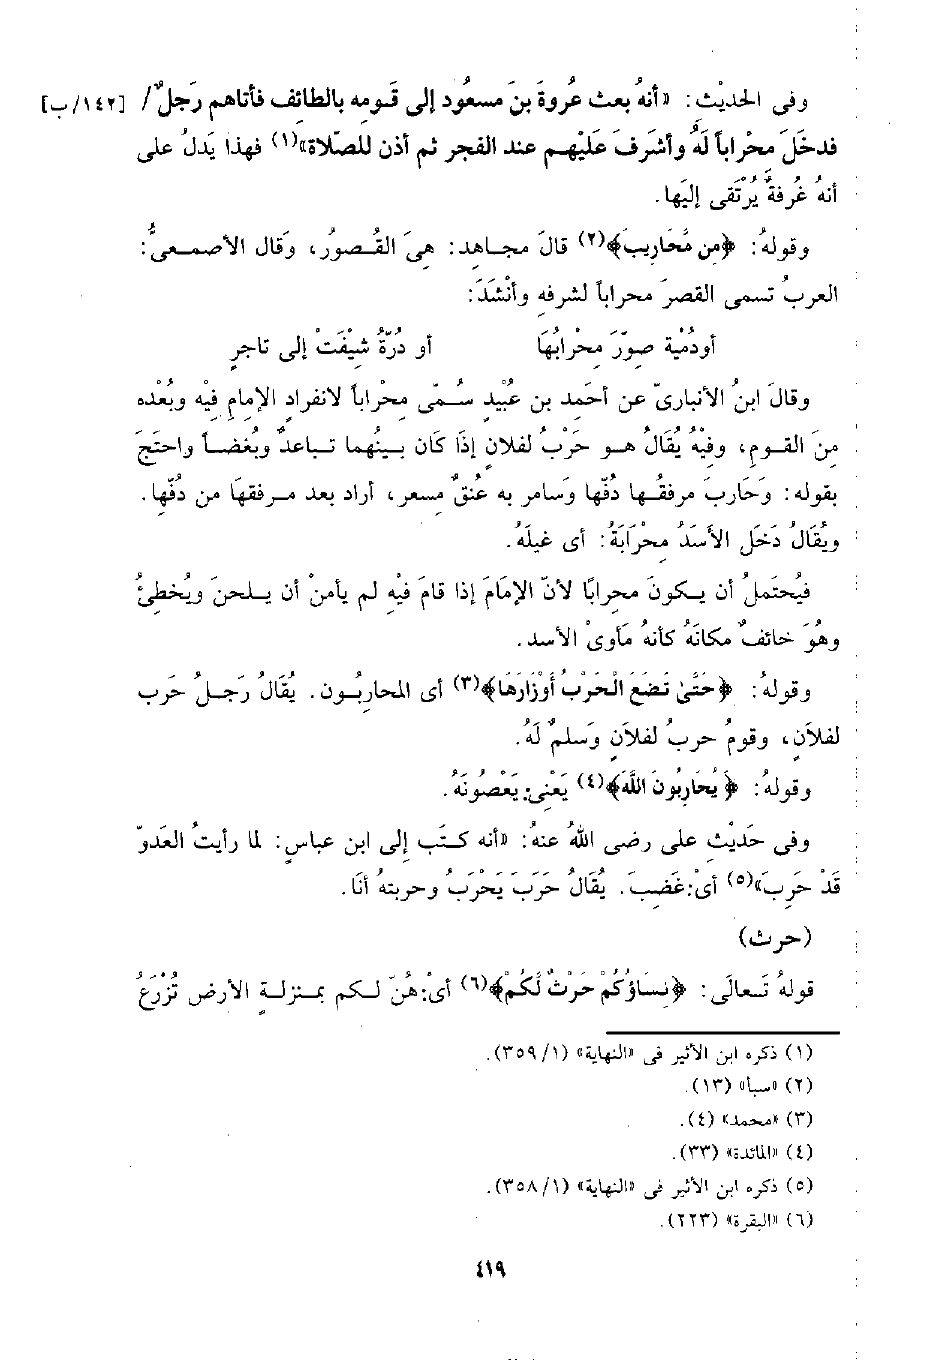 وفى الحديْث: «أنهُ بعث عُروةَ بنَ مسعُود إلى قَومِه بالطائفِ فأتاهم رَجلٌ/ [١٤٢/ب]
فدخَلَ مِحْراباً لَهُ وأشرَفَ عَلَيْهم عند الفجر ثم أذن للصّلاة»(١) فهذا يَدلُ على
أنهُ غُرفةٌ يُرْتَقى إليَها.
وقولهُ: ﴿مِن مَّحَارِيبَ﴾(٢) قالَ مجاهد: هِىَ القُصورُ، وَقال الأصمعىُّ:
العربُ تسمى القصرَ محراباً لشرفِه وأنْشَدَ:
أودُمْية صوّرَ مِحْرابُهَا أو دُرّةُ شيْفَتْ إلى تاجرِ
وقالَ ابنُ الأنبارىّ عن أحمَد بن عُبيْدٍ سُمّى مِحْراباً لانفرادِ الإمامِ فيْه وبُعْده
مِنَ القومِ، وفيْهُ يُقَالُ هو حَرْبُ لفلانٍ إذَا كَان بينُهما تباعدٌ وبُغضاً واحتَجَ
بقوله: وَحَاربَ مرفقُها دُفّها وَسامر به عُنقٌ مسعر، أراد بعد مرفقهَا من دُفّها.
ويُقَالُ دَخَل الأَسدُ مِحْرَابَهُ: أى غيلَهُ.
فيُحتَملُ أن يكونَ محرابًا لأنّ الإمَامَ إذا قامَ فيْهِ لم يأمنْ أن يلحنَ ويُخطِئُ
وهُوَ خائفٌ مكانَهُ كأنهُ مَأوىْ الأسد.
وقولهُ: ﴿حَتَّىٰ تَضَعَ الْحَرْبُ أَوْزَارَهَا﴾(٣) أى المحاربُون. يُقَالُ رَجلُ حَرب
لفلاَنٍ، وقومُ حربُ لفلاَنٍ وَسلمٌ لَهُ.
وقولهُ: ﴿يُحَارِبُونَ اللَّهَ﴾(٤) يَعْنِى: يَعْصُونَهُ.
وفى حَديْث على رضى اللهُ عنهُ: «أنه كتَب إلى ابن عباسٍ: لما رأيتُ العَدوّ
قَدْ حَرِبَ»(٥) أىْ: غَضِبَ. يُقَالُ حَرَبَ يَحْرَبُ وحربتهُ أنَا.
(حرث)
قولهُ تَعالَى: ﴿نِسَاؤُكُمْ حَرْثٌ لَّكُمْ﴾(٦) أىْ: هُنّ لكم بمنزلةِ الأرضِ تُزْرَعُ
(١) ذكره ابن الأثير فى «النهاية» (٣٥٩/١).
(٢) «سبأ» (١٣).
(٣) «محمد» (٤).
(٤) «المائدة» (٣٣).
(٥) ذكره ابن الأثير فى «النهاية» (٣٥٨/١).
(٦) «البقرة» (٢٢٣).
٤١٩